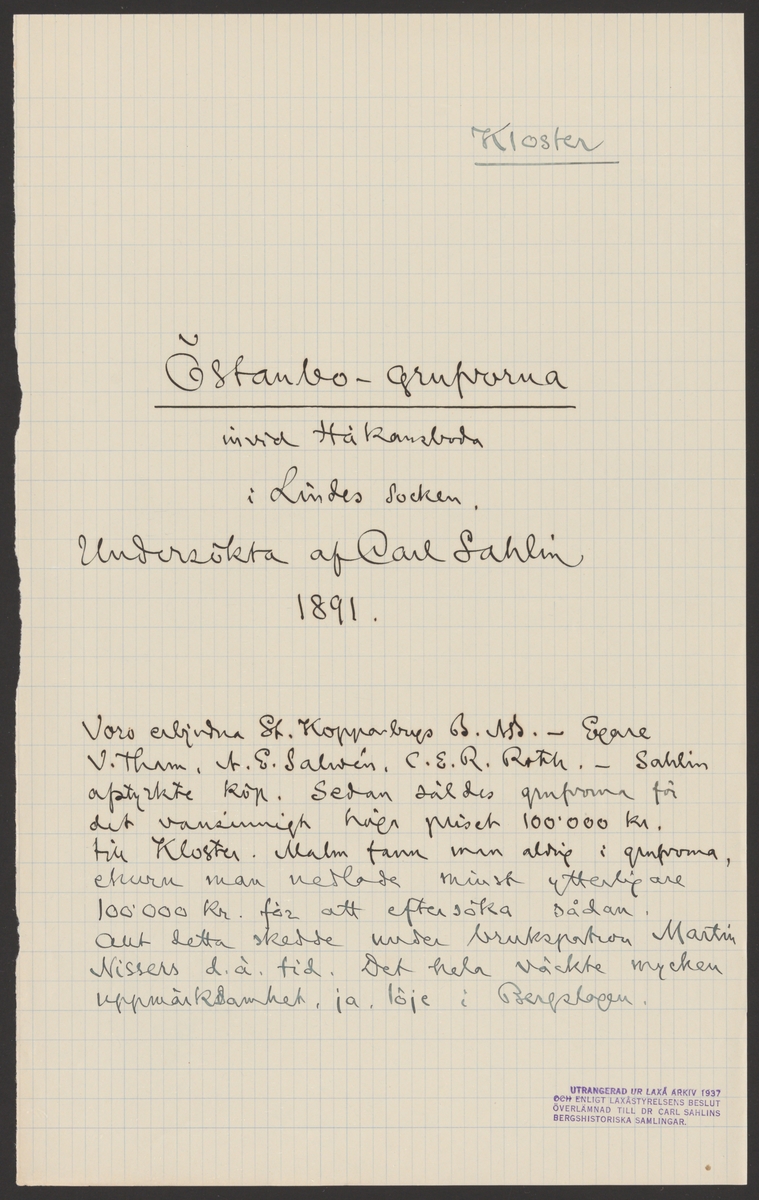 Kloster
Östanbo-grufvorna
invid Håkansboda
i Lindes socken.
Undersökta af Carl Sahlin
1891.
Voro erbjudna St. Kopparbergs B. AB. – Egare
V. Tham, A. E. Salwén, C. E. R. Roth. – Sahlin
afstyrkte köp. Sedan såldes grufvorna för
det vansinnigt höga priset 100'000 kr.
till Kloster. Malm fann man aldrig i grufvorna,
ehuru man nedlade minst ytterligare
100'000 kr. för att eftersöka sådan.
Allt detta skedde under brukspatron Martin
Nissers d.ä. tid. Det hela väckte mycken
uppmärksamhet, ja, löje i Bergslagen.
UTRANGERAD UR LAXÅ ARKIV 1937
OCH ENLIGT LAXÅSTYRELSENS BESLUT
ÖVERLÄMNAD TILL DR CARL SAHLINS
BERGSHISTORISKA SAMLINGAR.